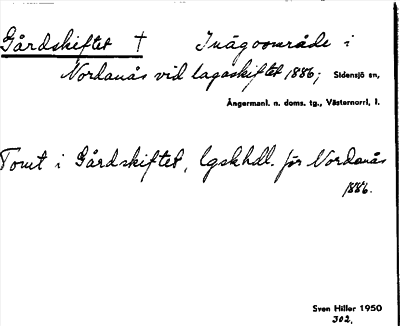 Gårdskiftet † Inägoområde i
Nordanås vid lagaskiftet 1886; Sidensjö sn,
Ångermanl. n. doms. tg., Västernorrl. l.
Tomt i Gårdskiftet, lgskhdl. för Nordanås
1886.
Sven Hiller 1950
302.